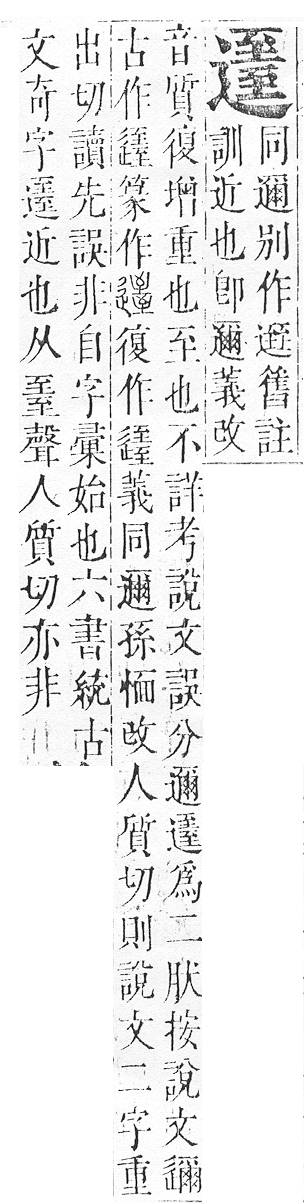 同邇別作舊註
訓近也卽邇義改
音質復增重也至也不詳考說文誤分邇爲二肰按說文邇
古作篆作復作義同邇孫愐改人質切則說文二字重
出切讀先誤非自字彙始也六書統古
文奇字近也从臸聲人質切亦非